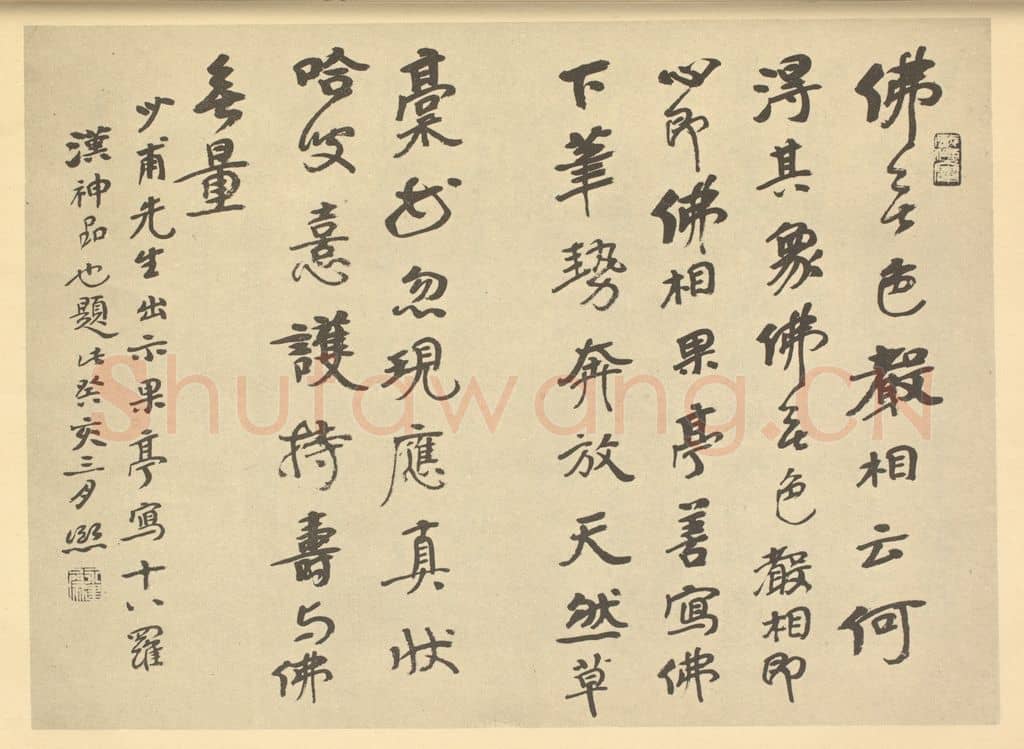 佛無色聲相云何
得其象佛無色聲相即
心即佛相果亭善寫佛
下筆勢奔放天然草
稾忽現應真狀
哈憙護持壽与佛
無量
少甫先生出示果亭寫十八羅
漢神品也題此癸亥三月熙
Shufawang.CN